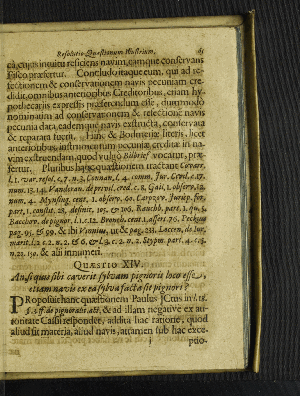 Resolutio Quæstionum Illustrium. 65
ea, cujus intuitu reficiens navim, eamque conservans
Fisco præfertur. Concludo itaque eum, qui ad re-
fectionem & conservationem navis pecuniam cre-
didit, omnibus anterioribus Creditoribus, etiam hy-
pothecariis expressis præferendum esse, dummodo
nominatim ad conservationem & refectione navis
pecunia data, eademque navis exstructa, conservata
& reparata fuerit. Hinc & Bodmeriæ literis, licet
anterioribus, instrumentum pecuniæ creditæ in na-
vem exstruendam, quod vulgò Bilbrief vocatur, præ-
fertur. Pluribus hanc quæstionem tractant Covarr.
l. 1. var. resol. c. 7. n. 3. Connan, l. 4. comm. Jur. Civil. c. 17.
num. 13. 14. de privil. cred. c. 8. Gail. 1. observ. 12.
num. 4. Mynsing. cent. 1. observ. 60. Carpzov. Jurispr. for.
part. 1. constit. 28. definit. 105. & 106. part. 1. qu. 4.
de pignor. l. 1. c. 12. cent. 1. assert. 76. Peckius
pag. 95. & 99. & ibi Vinnius, ut & pag. 233. Loccen. de Jur.
marit. l. 2. c. 2. n. 2. & 6. & l. 3. c. 2. n. 2. Stypm. part. 4. c. 5.
n. 21. 130. & alii innumeri.
QUÆSTIO XIV.
An si quis sibi caverit sylvam pignori loco esse,
etiam navis ex ea sylva facta sit pignori?
Proposuit hanc quæstionem Paulus JCtus in l. 18.
§. 3. ff. de pignorat. act. & ad illam negative ex au-
toritate Cassii respondet, addita hac ratione, quod
aliud sit materia, aliud navis, attamen sub hac exce-
i ptio-